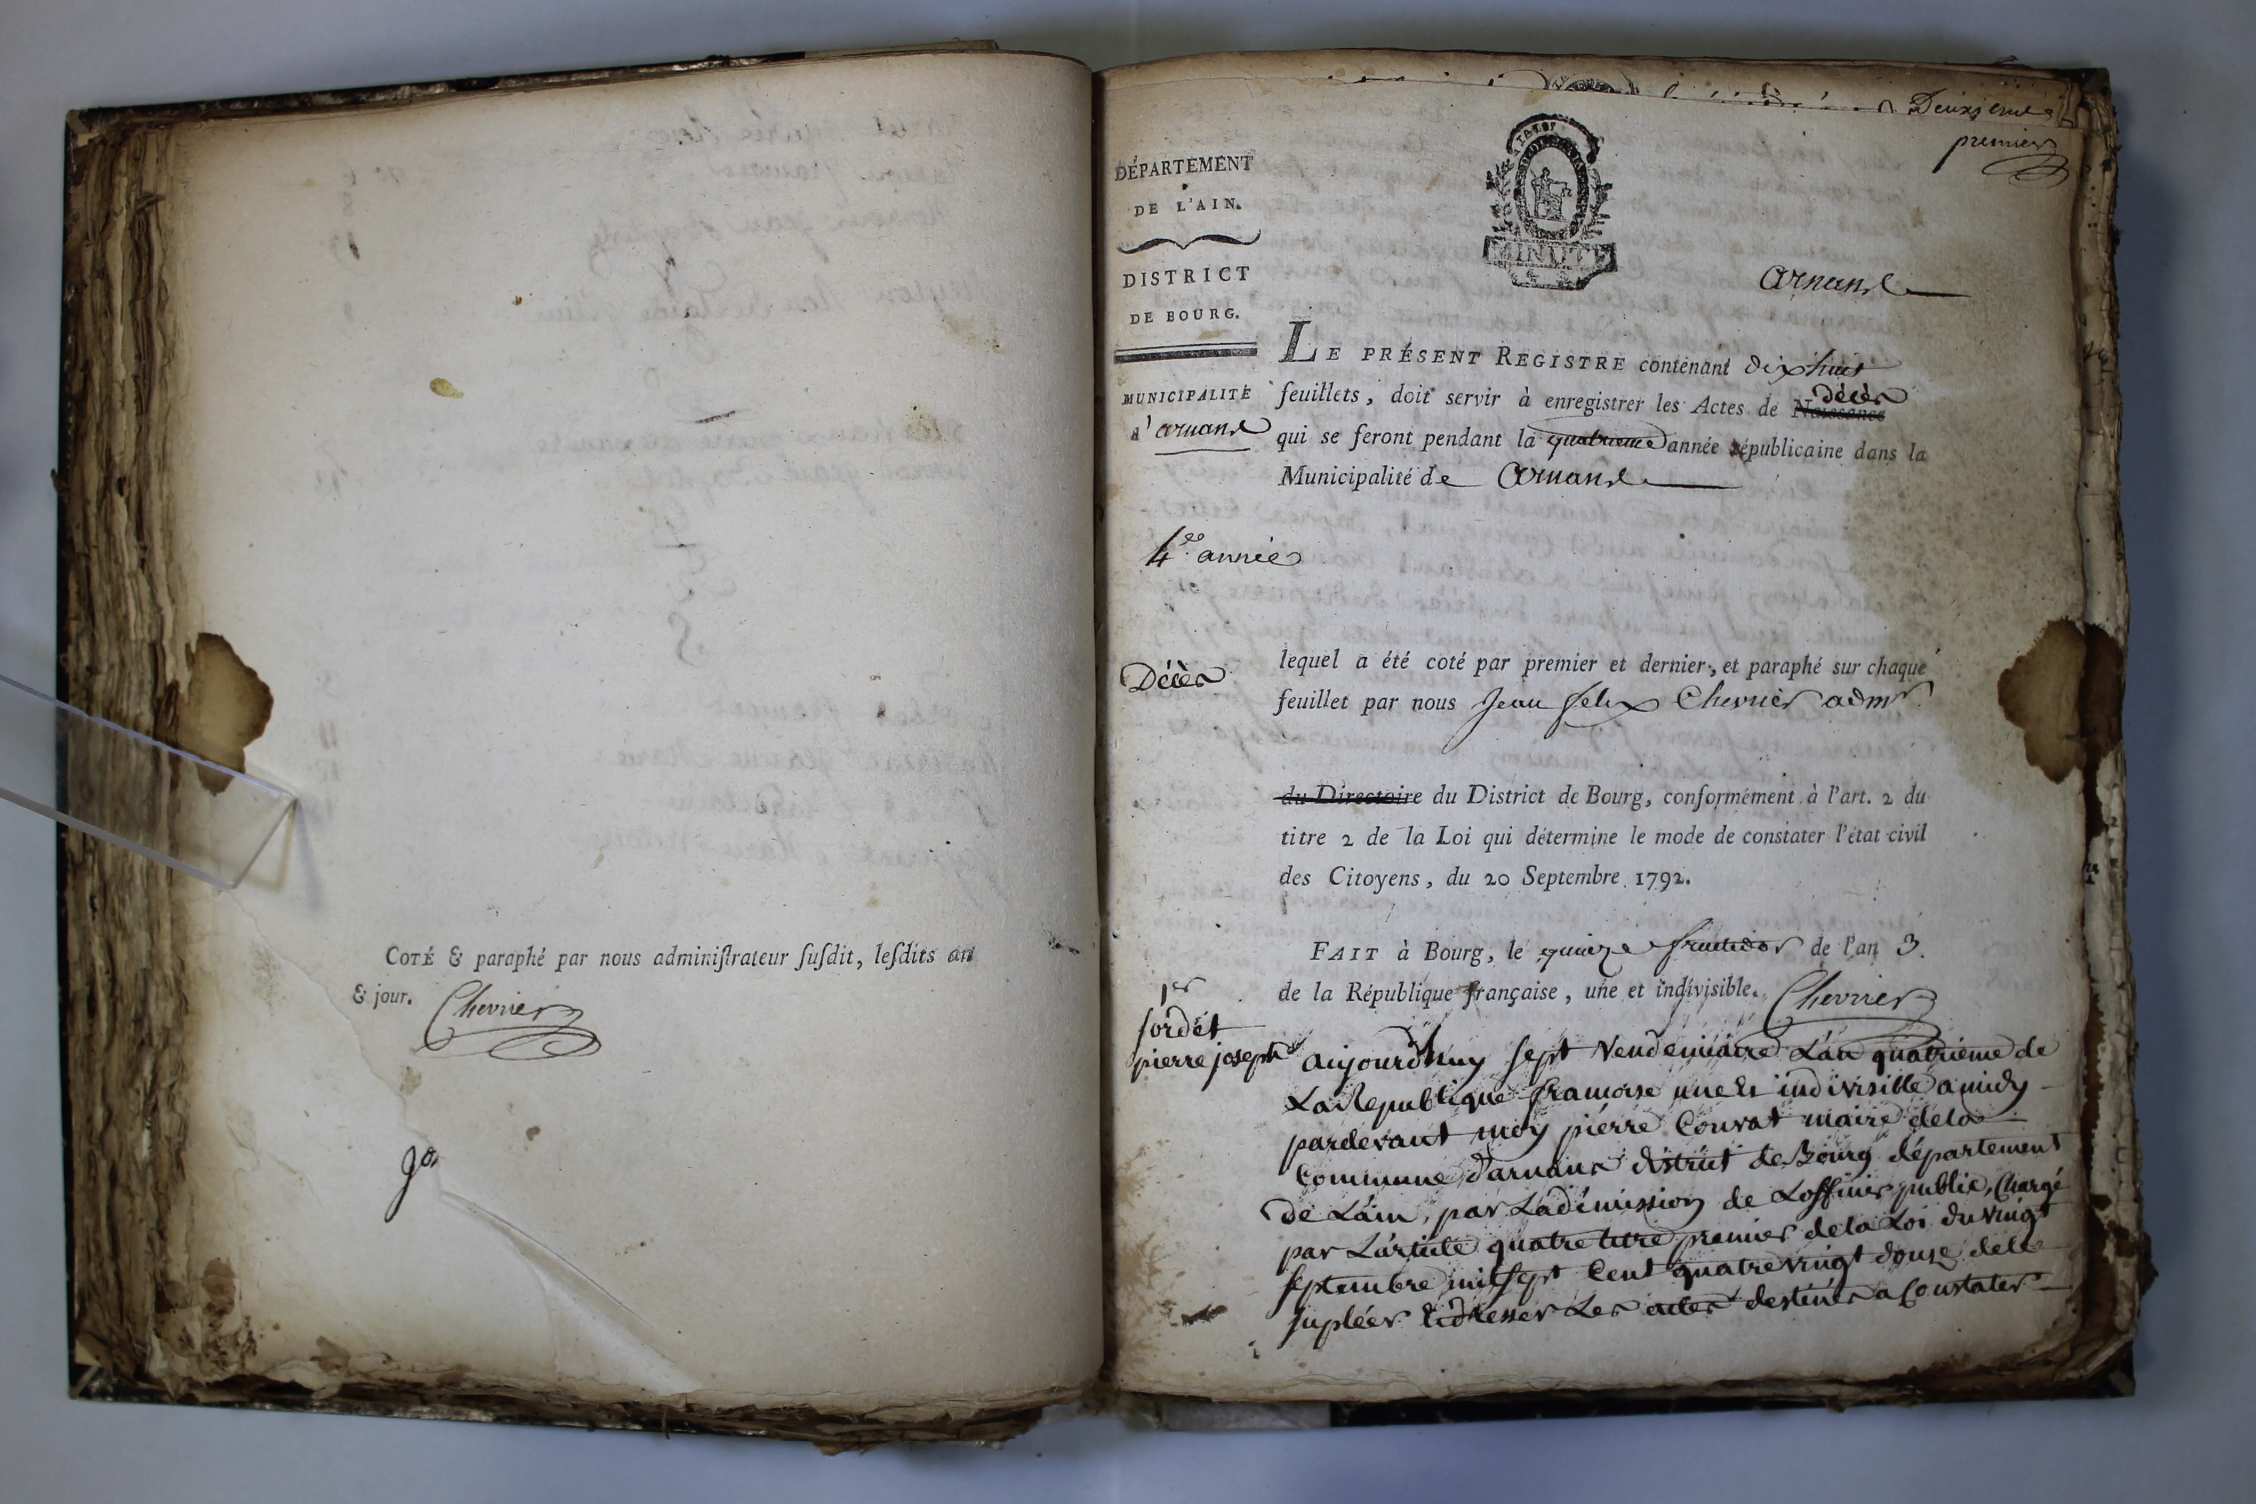 COTÉ & paraphé par nous administrateur susdit, lesdits an
& jour. Chevrier
Deuxieme
premier
MINUTE
DÉPARTEMENT
DE L'AIN.
DISTRICT
DE BOURG.
MUNICIPALITÉ
d'arnans
4e. année
Décès
arnans
LE PRÉSENT REGISTRE contenant dix huit
feuillets, doit servir à enregistrer les Actes de Naissance décès
qui se feront pendant la quatrieme année républicaine dans la
Municipalité de arnans
lequel a été coté par premier et dernier, et paraphé sur chaque
feuillet par nous Jean felix Chevrier admr.
du Directoire du District de Bourg, conformément à l'art. 2 du
titre 2 de la Loi qui détermine le mode de constater l'état civil
des Citoyens, du 20 Septembre 1792.
FAIT à Bourg, le quinze fructidor de l'an 3.
de la République française, une et indivisible. Chevrier
1er
fordét
pierre joseph
aujourdhuy sept Vendemiaire L'an quatrieme de
La Republique francoise une et indivisille a midy
pardevant moy pierre Couvat maire de la
Commune d'arnans district de Bourg département
de L'ain, par La démission de Lofficier public, Chargé
par L'article quatre titre premier de la Loi du vingt
septembre mil sept Cent quatre vingt douze de le
supléer et dresser Les actes destinés a Constater